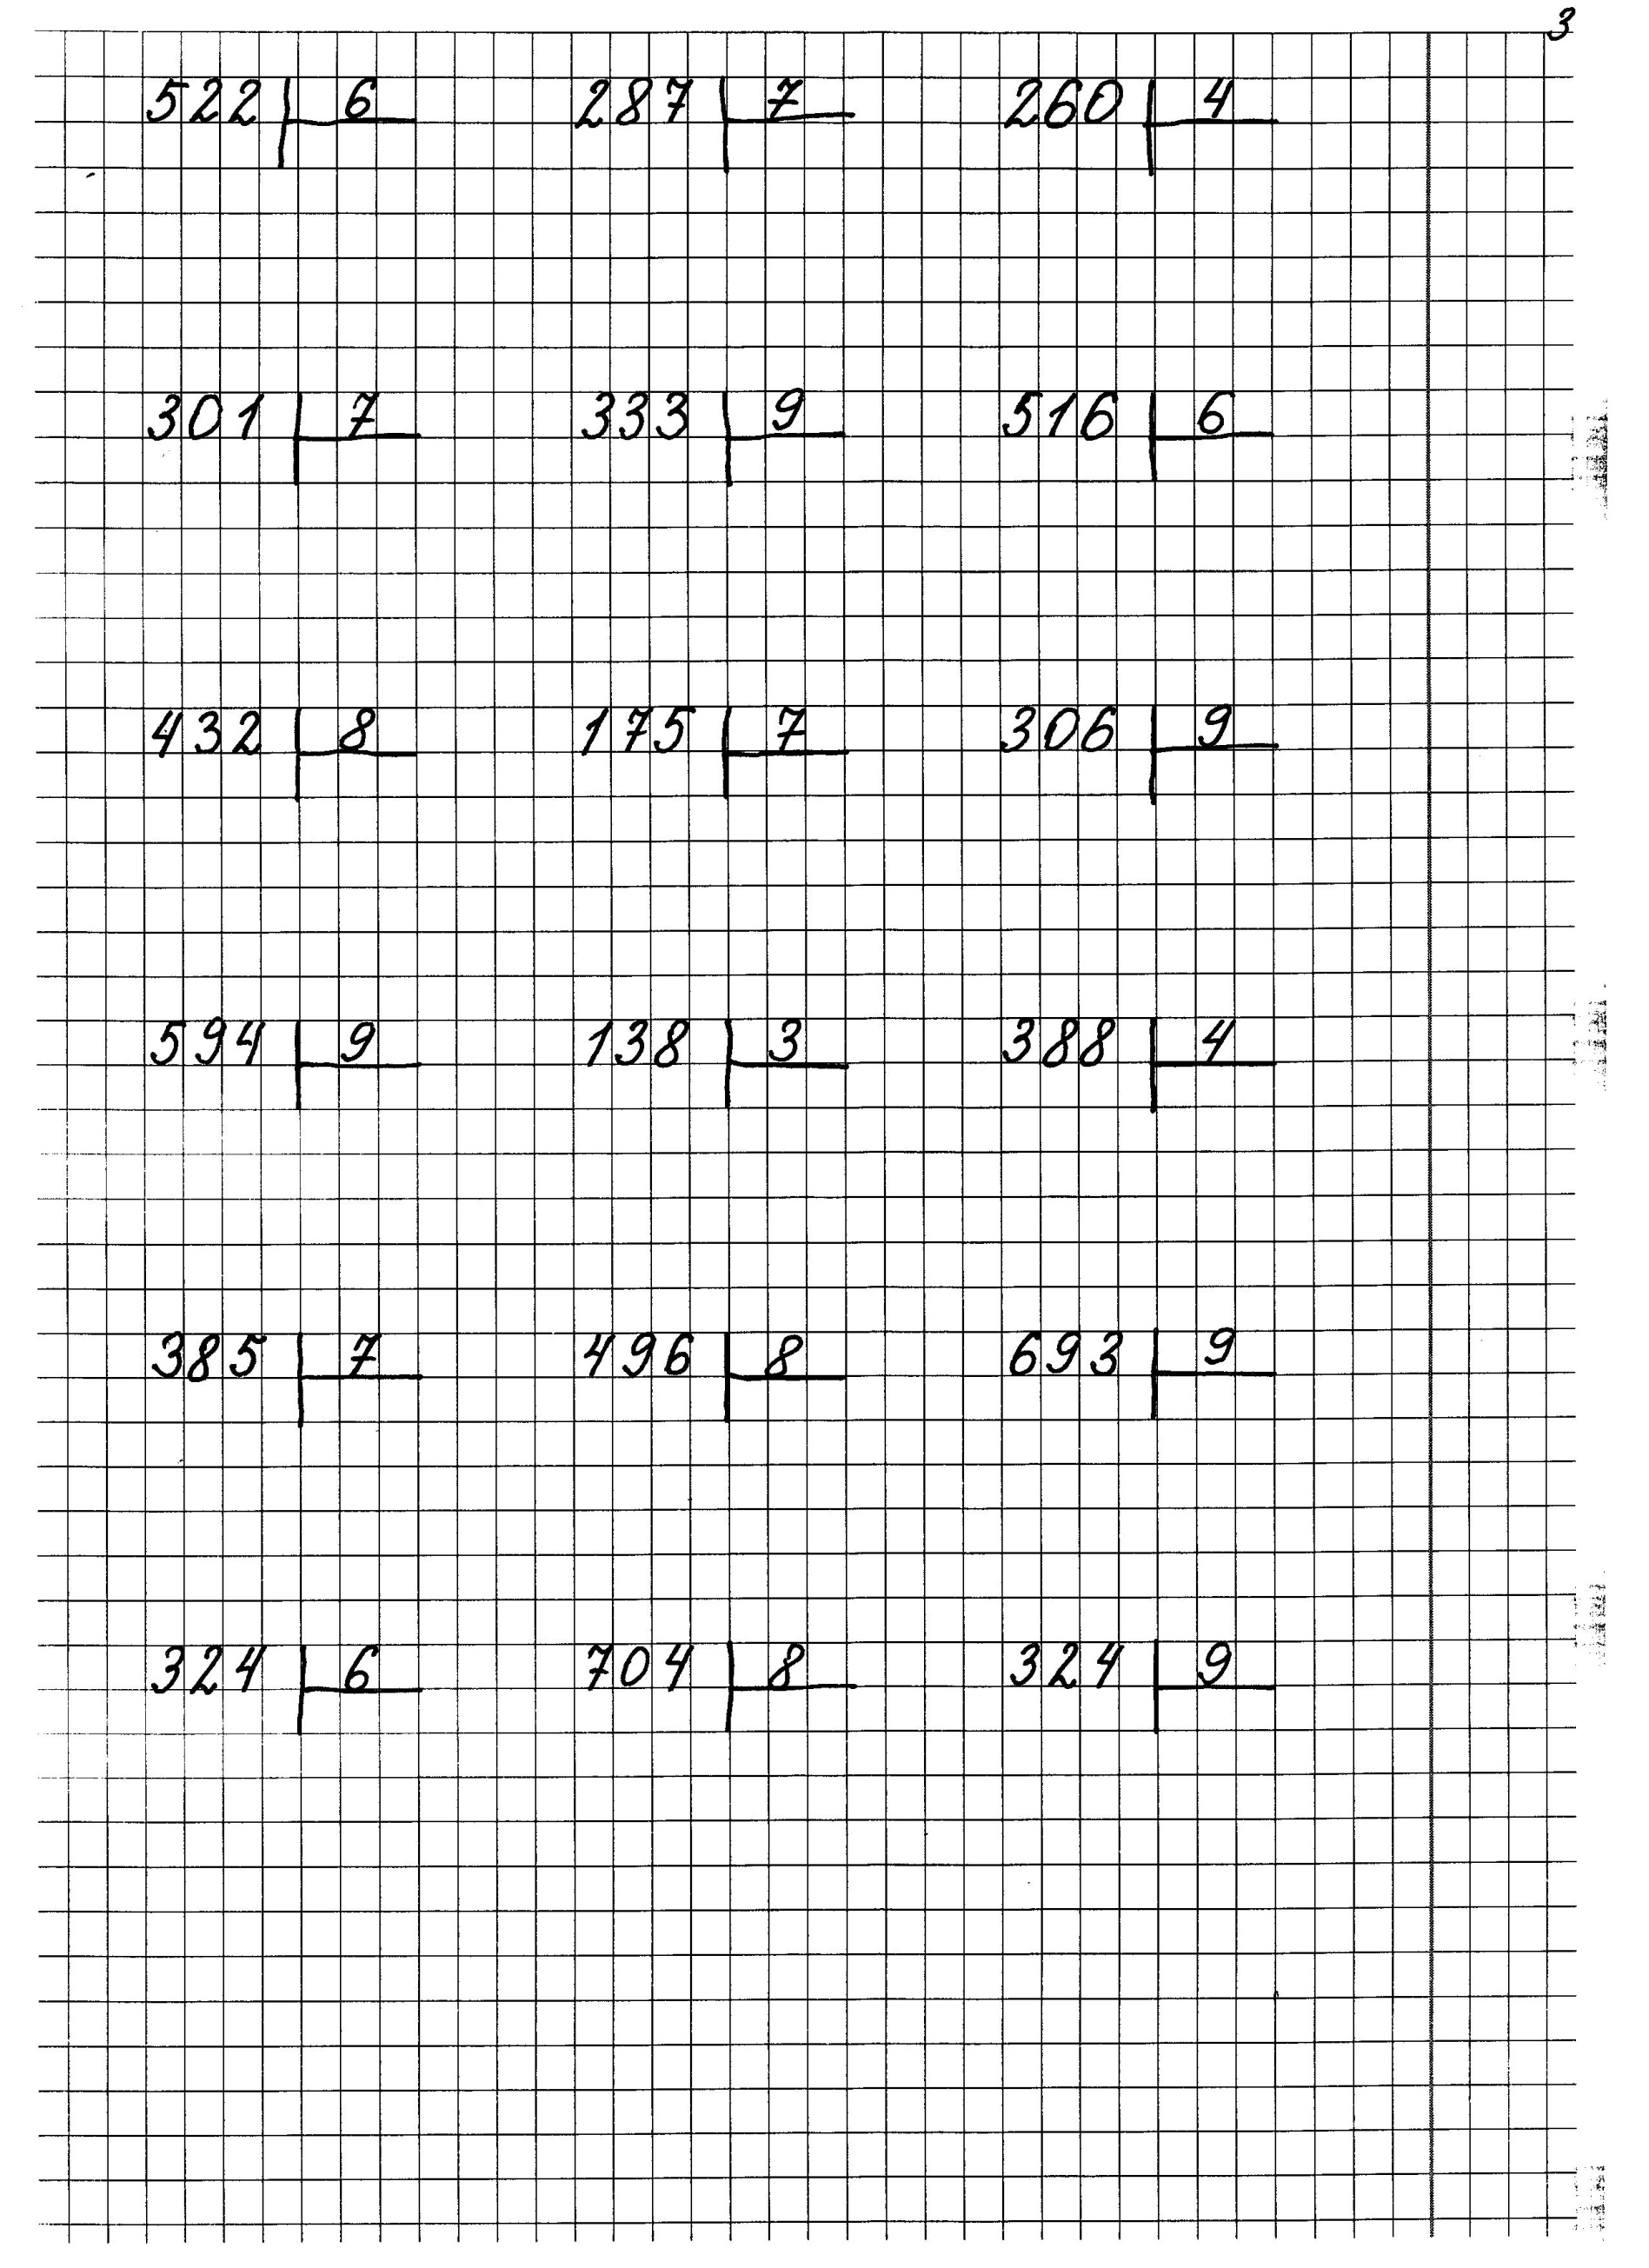 3
522 6 287 7 260 4
301 7 333 9 516 6
432 8 175 7 306 9
594 9 138 3 388 4
385 7 496 8 693 9
324 6 704 8 324 9